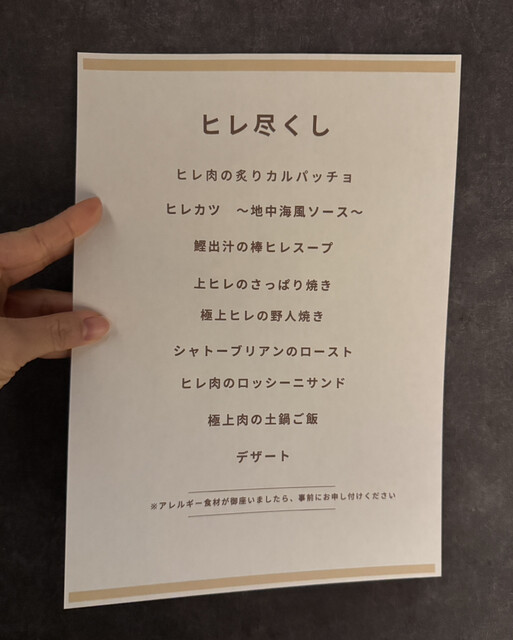 ヒレ尽くし
ヒレ肉の炙りカルパッチョ
ヒレカツ　〜地中海風ソース〜
鰹出汁の棒ヒレスープ
上ヒレのさっぱり焼き
極上ヒレの野人焼き
シャトーブリアンのロースト
ヒレ肉のロッシーニサンド
極上肉の土鍋ご飯
デザート
※アレルギー食材が御座いましたら、事前にお申し付けください